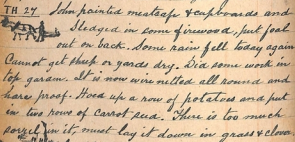 TH 27 John painted meatsafe & cupboards and
sledged in some firewood, put foal
out on back. Some rain fell today again
Cannot get shup or yards dry. Did some work in
top garan. It is now wire netted all round and
hare proof. Hoed up a row of potatoes and put
in two rows of carrot seed. There is too much
sorrel in it, must lay it down in grass & clover